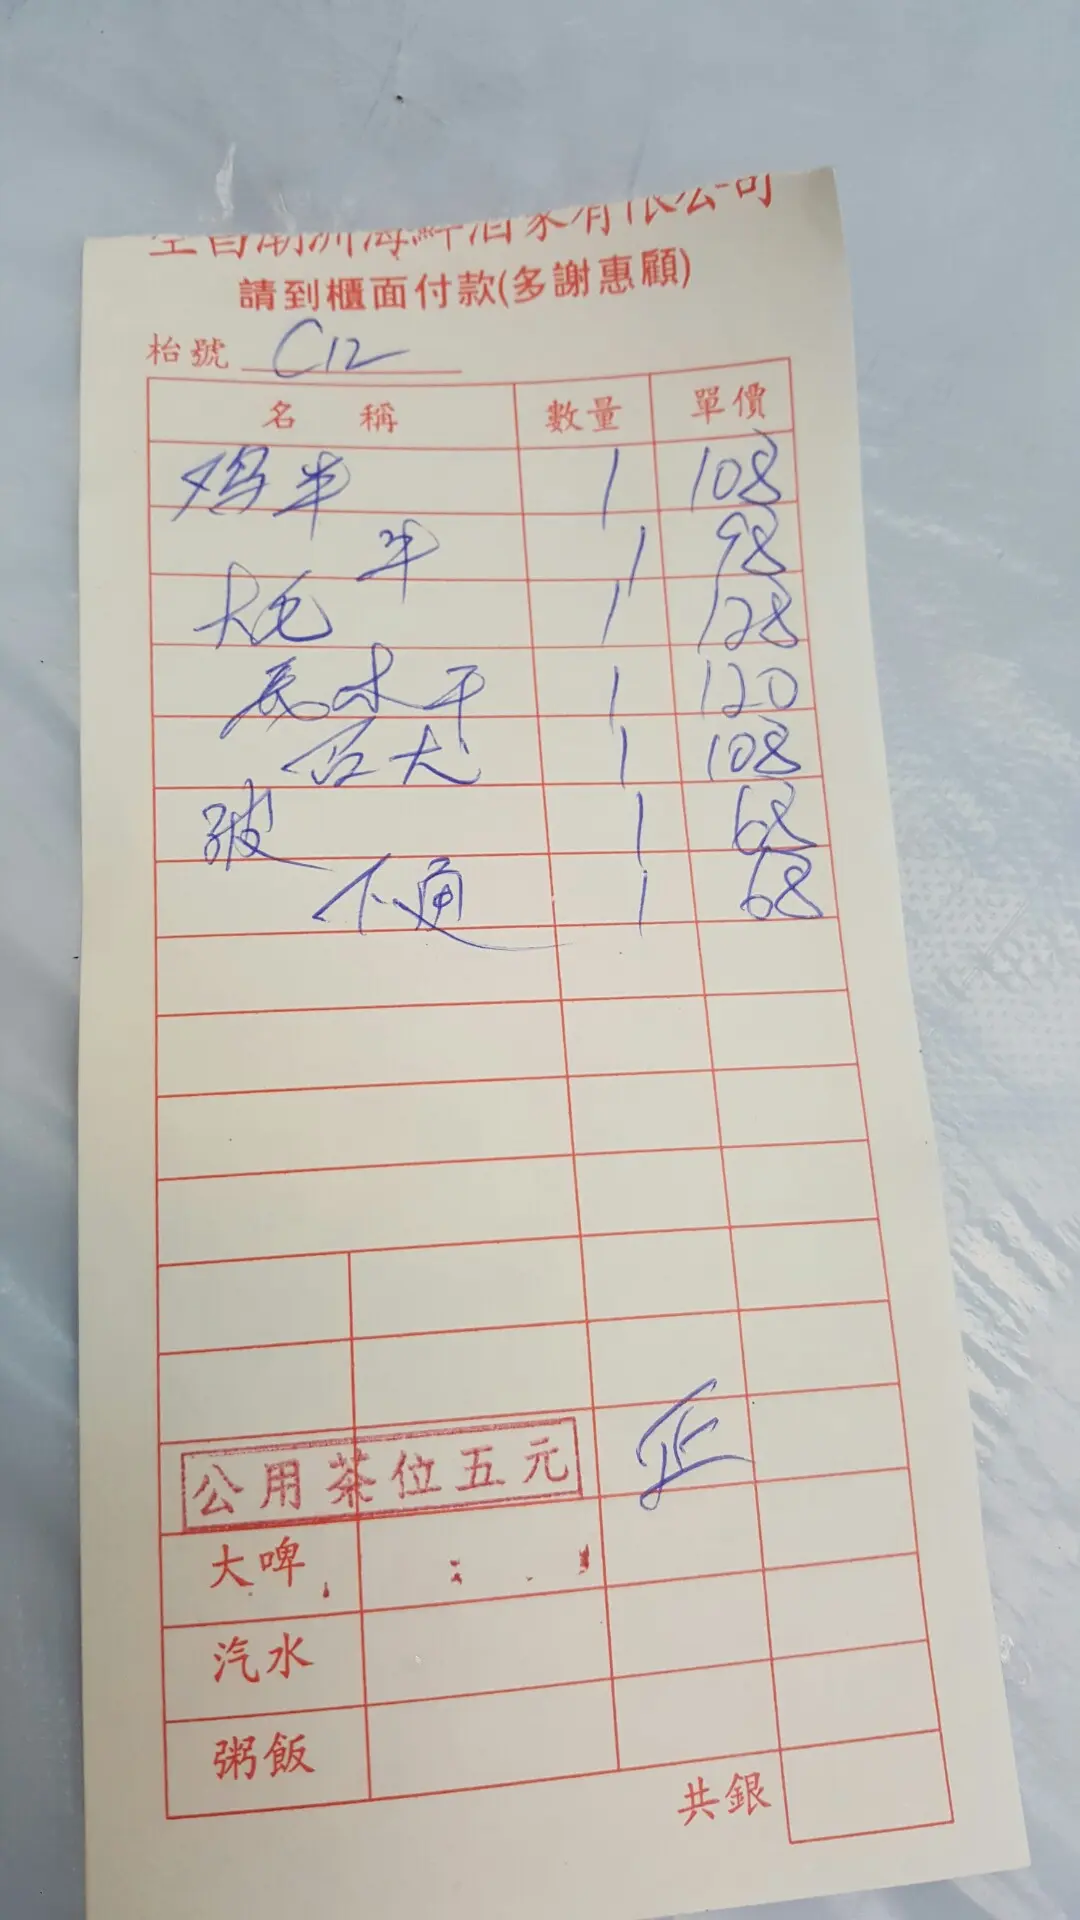 潮洲海鮮酒家有限公司
請到櫃面付款(多謝惠顧)
枱號 C12
名 稱 數量 單價
半 1 108
半 1 98
大 1 128
木干 1 120
1 108
1 68
不 1 68
公用茶位五元 正
大啤
汽水
粥飯
共銀